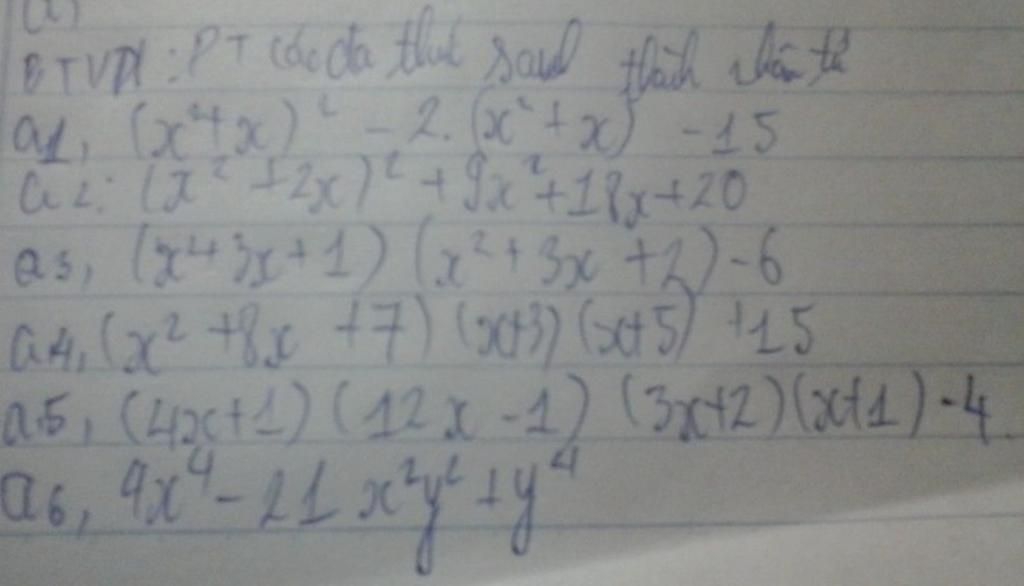 BTVN: PT các đa thức sau thành nhân tử
a1, (x²+x)² - 2.(x²+x) - 15
a2: (x² + 2x)² + 9x² + 18x + 20
a3, (x²+3x+1) (x² + 3x + 2) - 6
a4, (x² + 8x + 7) (x+3) (x+5) + 15
a5, (4x+1) (12x - 1) (3x+2) (x+1) - 4.
a6, 4x⁴ - 21 x²y² + y⁴